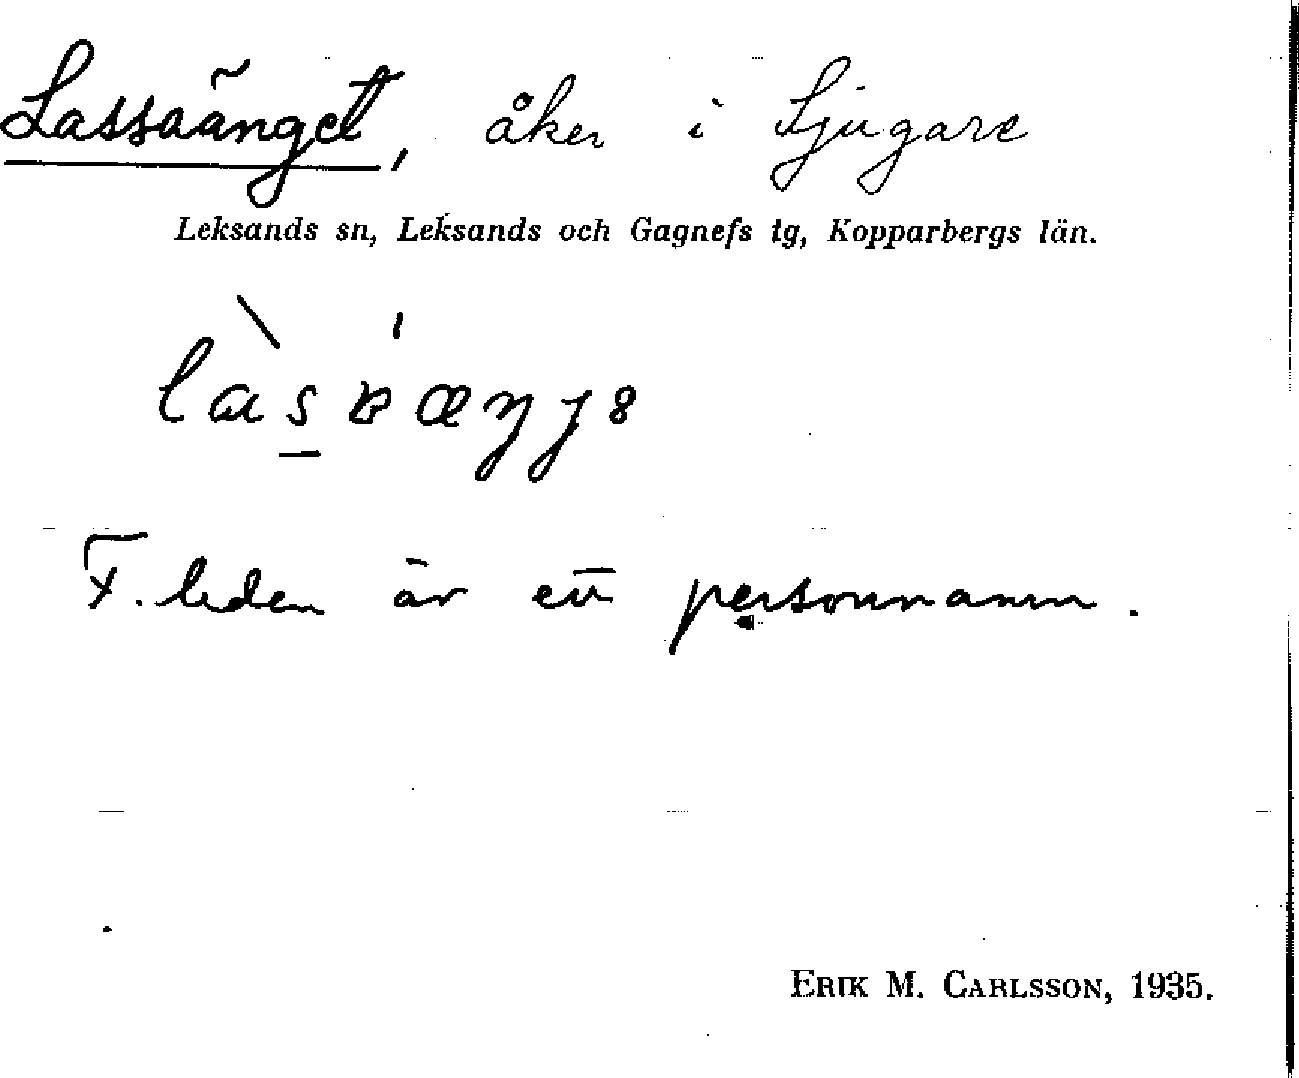 Lassaänget, åker i Ljugare
Leksands sn, Leksands och Gagnefs tg, Kopparbergs län.
F. leden är ett personnamn.
ERIK M. CARLSSON, 1935.